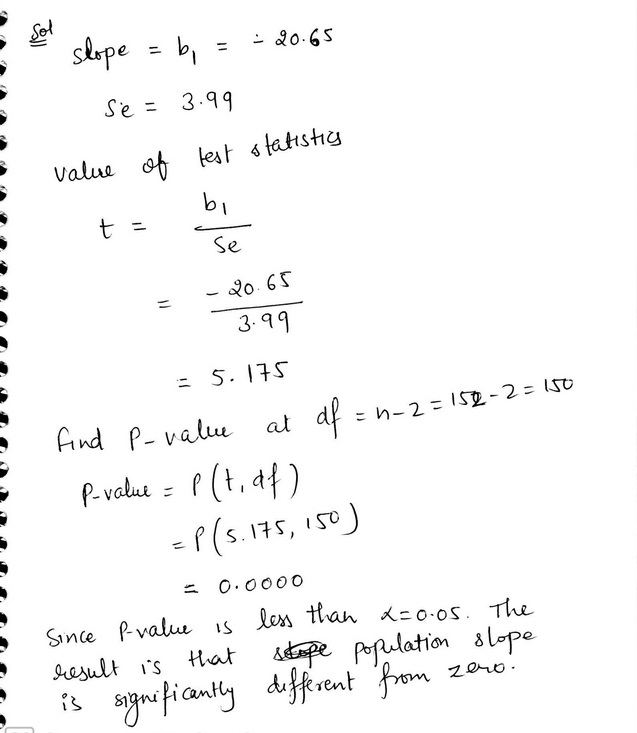 Sol
slope = b₁ = - 20.65
Se = 3.99
value of test statistics
t = b₁ / Se
= - 20.65 / 3.99
= 5.175
find P-value at df = n-2 = 152-2 = 150
P-value = P(t, df)
= P(5.175, 150)
= 0.0000
Since P-value is less than α=0.05. The
result is that population slope
is significantly different from zero.